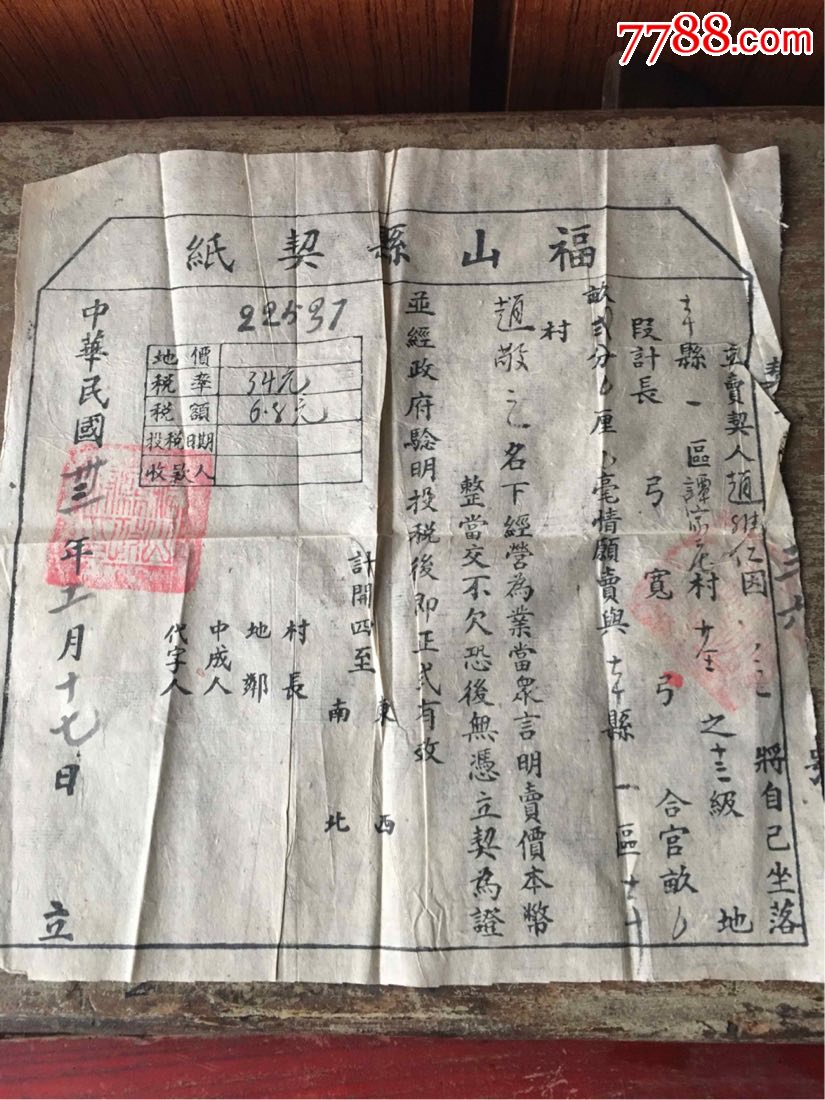 7788.com
福山縣契紙
立賣契人趙維仁因 將自己坐落
縣一區譚家庄村 之十三級地
段計長 弓寬 弓合官畝
畝貳分 厘 毫情願賣與 縣一區
村
趙敬之名下經營為業當眾言明賣價本幣
整當交不欠恐後無憑立契為證
並經政府驗明投税後即正式有效
計開四至
東
西
南
北
村長
地鄰
中成人
代字人
22537
地價
税率 34元
税額 6.8元
投税日期
收款人
中華民國卅三年 月十七日 立